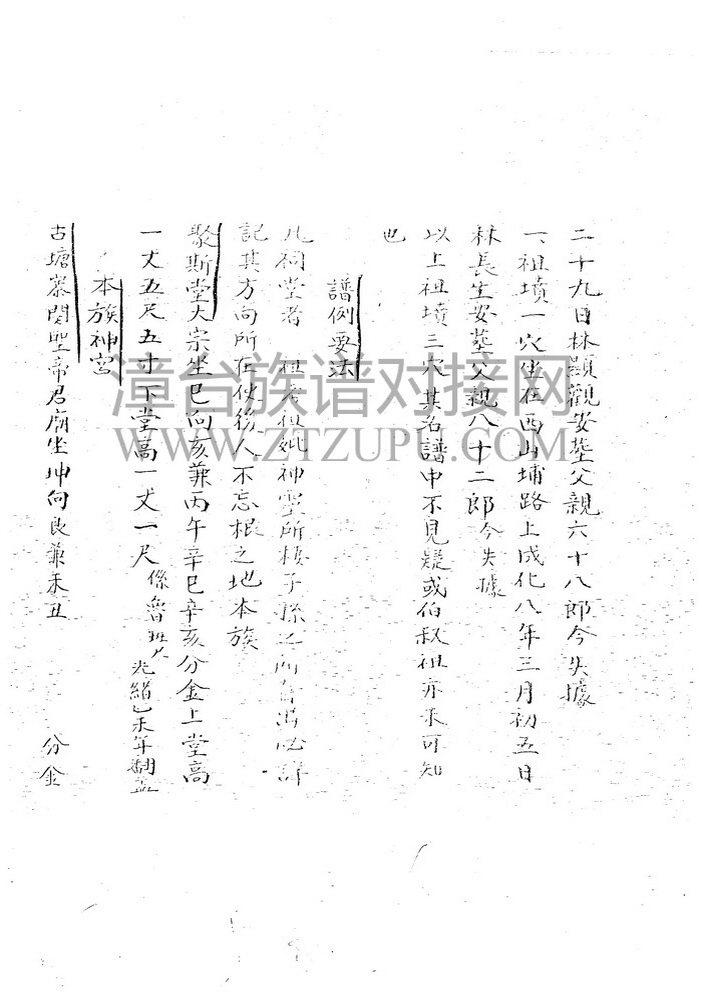 二十九日林顯觀安塟父親六十八郎今失據
一祖墳一穴坐在西山埔路上成化八年三月初五日
林長生安塟父親八十二郎今失據
以上祖墳三穴其名譜中不見疑或伯叔祖亦未可知
也
譜例要法
凡祠堂者 祖考祖妣神灵所棲子孫之所 必詳
記其方向所在使後人不忘根之地本族
聚斯堂大宗坐巳向亥兼丙午辛巳辛亥分金上堂高
一丈五尺五寸下堂高一丈一尺 係魯班尺 光緒乙未年翻蓋
本族神宮
古塘寨関聖帝君廟坐坤向艮兼未丑 分金
漳台族谱对接网
WWW.ZTZUPU.COM